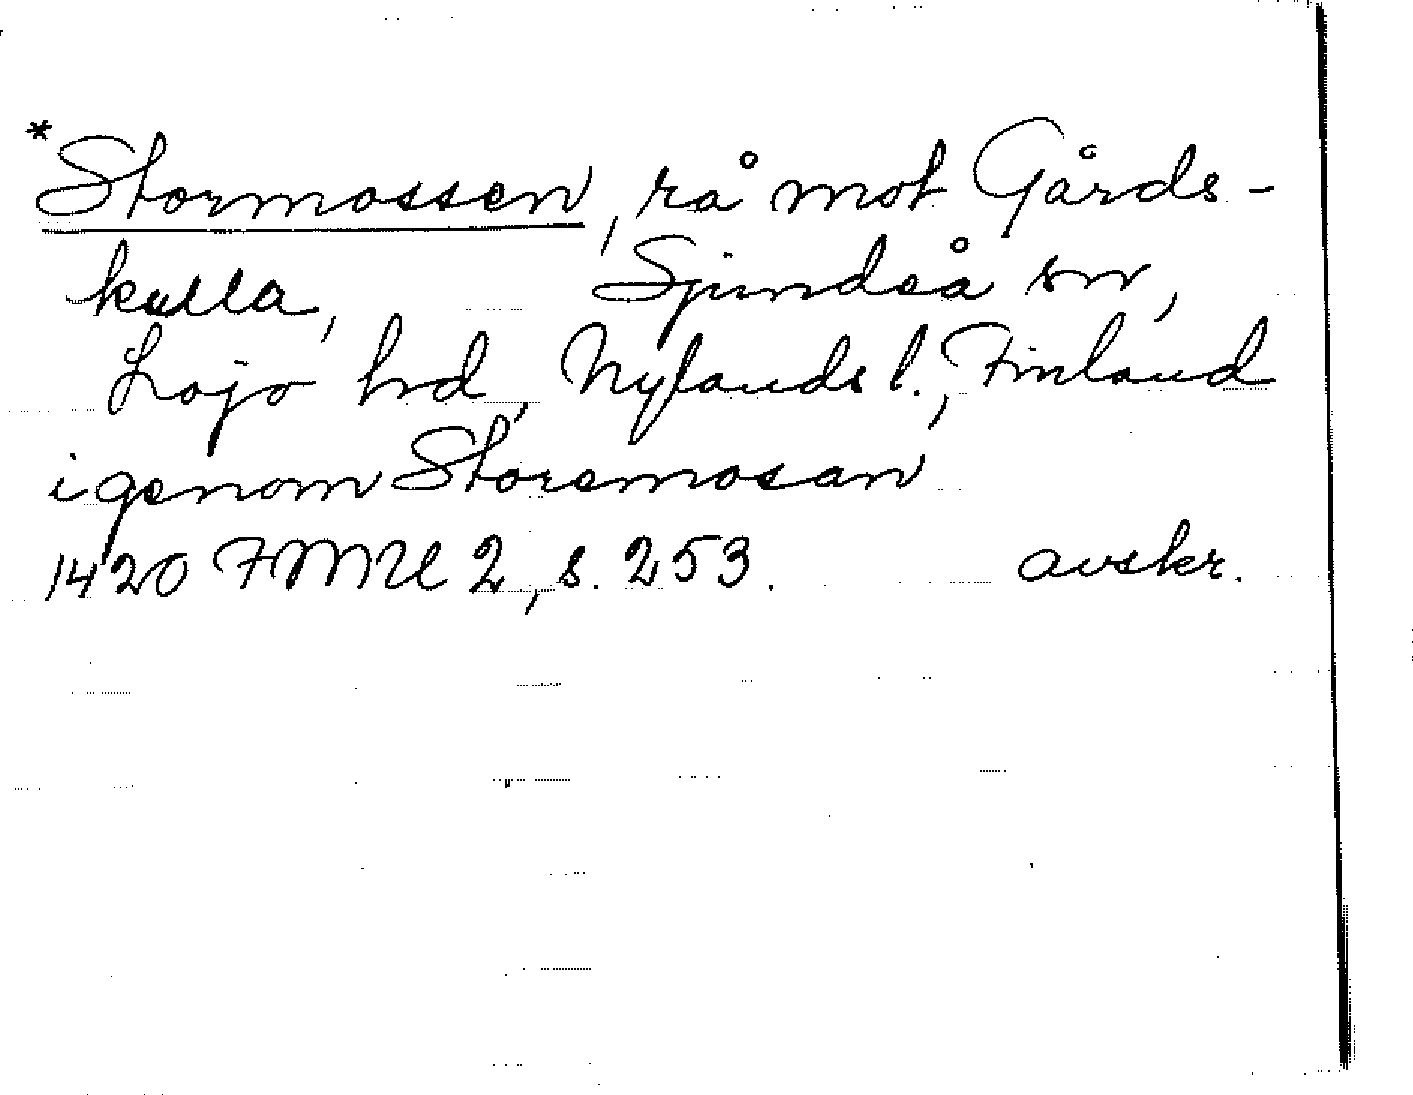 *Stormossen, rå mot Gårds-
kulla, Sjundeå sn,
Lojo hrd, Nylands l., Finland
igenom Storemosan
1420 FMU 2, s. 253. avskr.